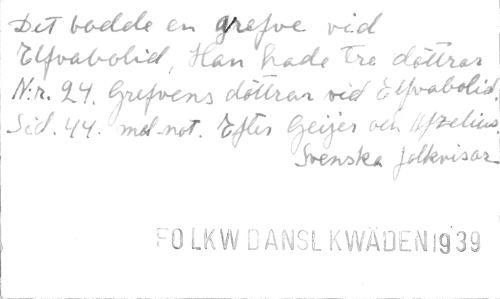 Det bodde en grefve vid
Elfvabolid, Han hade tre döttrar
N:r. 24. Grefvens döttrar vid Elfvabolid.
Sid. 44. md not. Efter Geijer och Afzelius
Svenska folkvisor
FOLKW DANSL KWÄDEN 1939